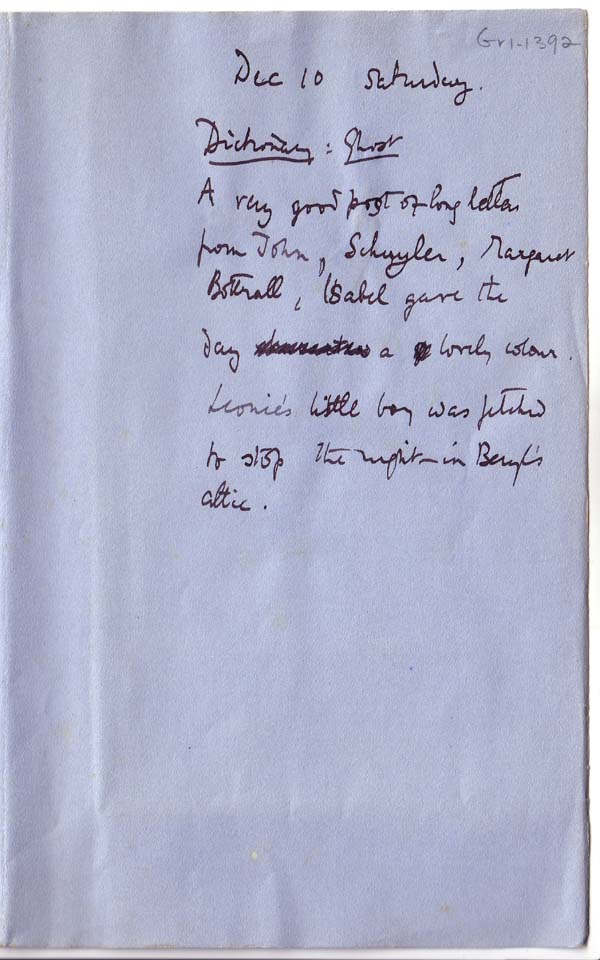 Gr1-1392
Dec 10 Saturday.
Dictionary : Ghost
A very good post of long letters
from John, Schuyler, Margaret
Bottrall, Isabel gave the
day a lovely colour.
Leonie's little boy was fetched
to stop the night - in Beryl's
attic.